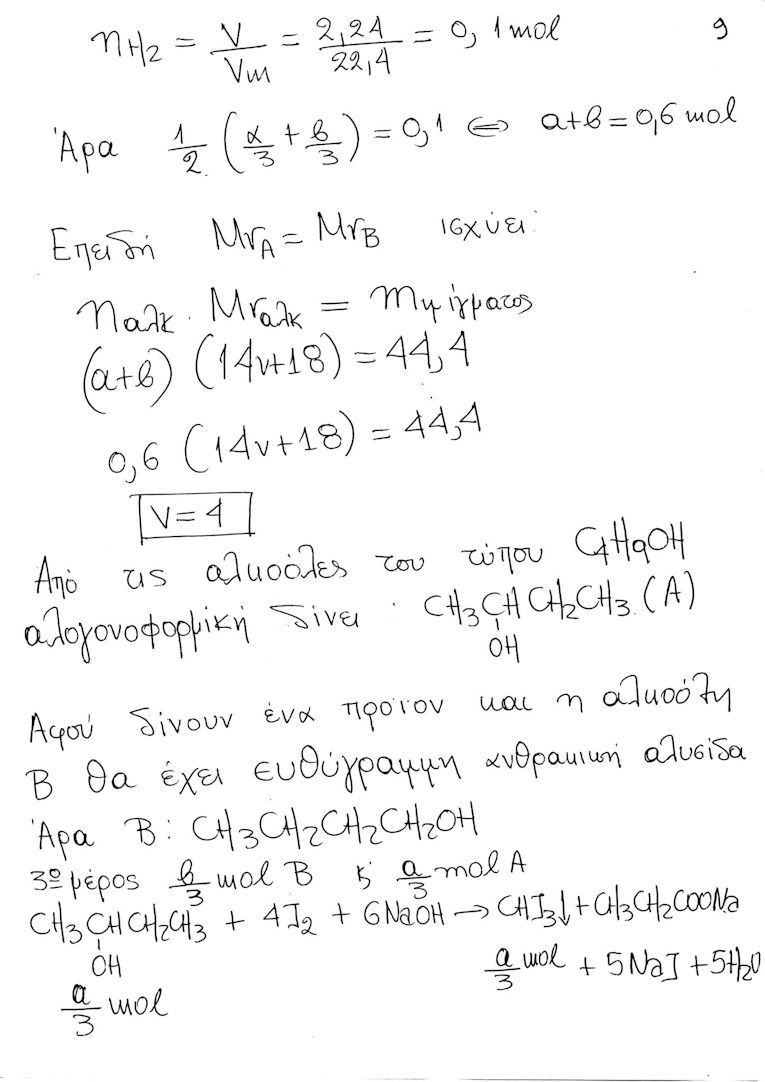 9
nH2 = V/Vm = 2,24/22,4 = 0,1 mol
Άρα 1/2 (α/3 + β/3) = 0,1 ⇔ α+β = 0,6 mol
Επειδή MrA = MrB ισχύει:
nαλκ · Mrαλκ = mμίγματος
(α+β) (14ν+18) = 44,4
0,6 (14ν+18) = 44,4
ν = 4
Από τις αλκοόλες του τύπου C4H9OH
αλογονοφορμική δίνει : CH3CHCH2CH3 (A)
OH
Αφού δίνουν ένα προϊον και η αλκοόλη
Β θα έχει ευθύγραμμη ανθρακική αλυσίδα
Άρα Β: CH3CH2CH2CH2OH
3º μέρος β/3 mol B ϗ α/3 mol A
CH3CHCH2CH3 + 4I2 + 6NaOH → CHI3↓ + CH3CH2COONa
OH
α/3 mol + 5NaI + 5H2O
α/3 mol